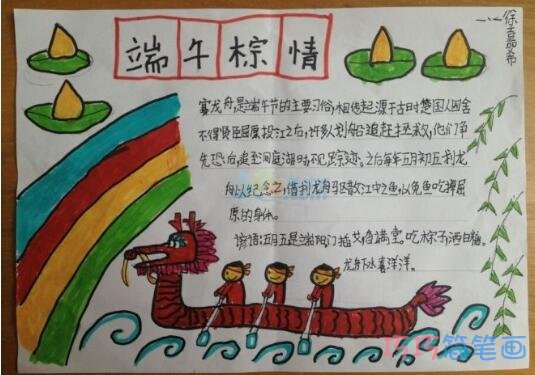 端午棕情
一、2 徐嘉希
赛龙舟,是端午节的主要习俗,相传起源于古时楚国人因舍
不得贤臣屈原投江之后,许多人划船追赶拯救,他们争
先恐后,追至洞庭湖时不见踪迹。之后每年五月初五划龙
舟以纪念之,借划龙舟驱散江中之鱼,以免鱼吃掉屈
原的身体。
谚语:五月五是端阳门插艾香满堂。吃粽子洒白糖。
龙舟下水喜洋洋。
巧巧简笔画